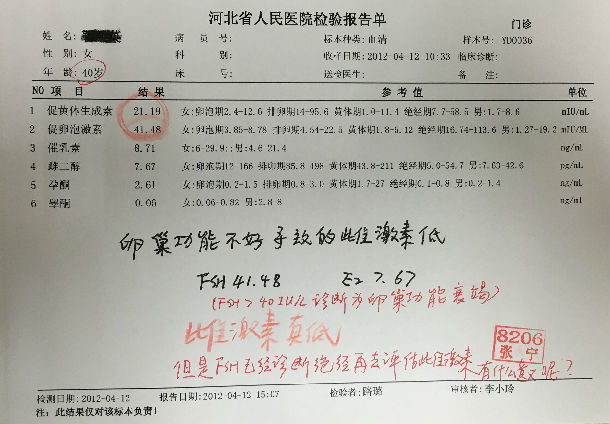 河北省人民医院检验报告单
门诊
姓 名: 病 员 号: 标本种类:血清 样本号:YD0036
性 别:女 科 别: 收样日期:2012-04-12 10:33 临床诊断:
年 龄:40岁 床 号: 送检医生: 备 注:
NO 项 目 结 果 参 考 值 单位
1 促黄体生成素 21.19 女:卵泡期2.4-12.6 排卵期14-95.6 黄体期1.0-11.4 绝经期7.7-58.5 男:1.7-8.6 mIU/mL
2 促卵泡激素 41.48 女:卵泡期3.85-8.78 排卵期4.54-22.5 黄体期1.8-5.12 绝经期16.74-113.6 男:1.27-19.2 mIU/Ml
3 催乳素 8.71 女:6-29.9;:男:4.6-21.4 ng/mL
4 雌二醇 7.67 女:卵泡期12-166 排卵期85.8-498 黄体期43.8-211 绝经期5.0-54.7 男:7.63-42.6 pg/mL
5 孕酮 2.61 女:卵泡期0.2-1.5 排卵期0.8-3.0 黄体期1.7-27 绝经期0.1-0.8 男:0.2-1.4 ng/mL
6 睾酮 0.06 女:0.06-0.82 男:2.8-8 ng/ml
卵巢功能不好导致的雌激素低
FSH 41.48 E2 7.67
(FSH>40IU/L诊断为卵巢功能衰竭)
雌激素真低
8206
张宁
但是FSH已经诊断绝经再去评估雌激素
有什么意义呢?
检测日期:2012-04-12 报告日期:2012-04-12 15:07 检验者:路璐 审核者:李小玲
注:此结果仅对该标本负责!